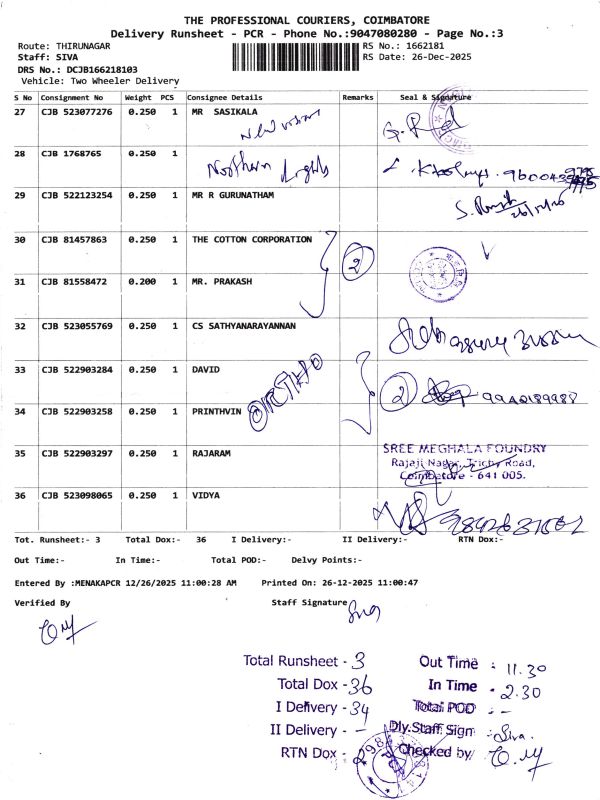 THE PROFESSIONAL COURIERS, COIMBATORE
Delivery Runsheet - PCR - Phone No.:9047080280 - Page No.:3
Route: THIRUNAGAR RS No.: 1662181
Staff: SIVA RS Date: 26-Dec-2025
DRS No.: DCJB166218103
Vehicle: Two Wheeler Delivery
S No Consignment No Weight PCS Consignee Details Remarks Seal & Signature
27 CJB 523077276 0.250 1 MR SASIKALA
New vision
28 CJB 1768765 0.250 1
Northern Lights
29 CJB 522123254 0.250 1 MR R GURUNATHAM
S.
26/12/26
30 CJB 81457863 0.250 1 THE COTTON CORPORATION
2
31 CJB 81558472 0.200 1 MR. PRAKASH
32 CJB 523055769 0.250 1 CS SATHYANARAYANNAN
33 CJB 522903284 0.250 1 DAVID
2 9942189988
34 CJB 522903258 0.250 1 PRINTHVIN
35 CJB 522903297 0.250 1 RAJARAM
SREE MEGHALA FOUNDRY
Rajaji Nagar, Trichy Road,
Coimbatore - 641 005.
36 CJB 523098065 0.250 1 VIDYA
Tot. Runsheet:- 3 Total Dox:- 36 I Delivery:- II Delivery:- RTN Dox:-
Out Time:- In Time:- Total POD:- Delvy Points:-
Entered By :MENAKAPCR 12/26/2025 11:00:28 AM Printed On: 26-12-2025 11:00:47
Verified By Staff Signature
Total Runsheet - 3 Out Time : 11.30
Total Dox - 36 In Time : 2.30
I Delivery - 34 Total POD : -
II Delivery - - Dly.Staff Sign : Siva.
RTN Dox - 2 Checked by